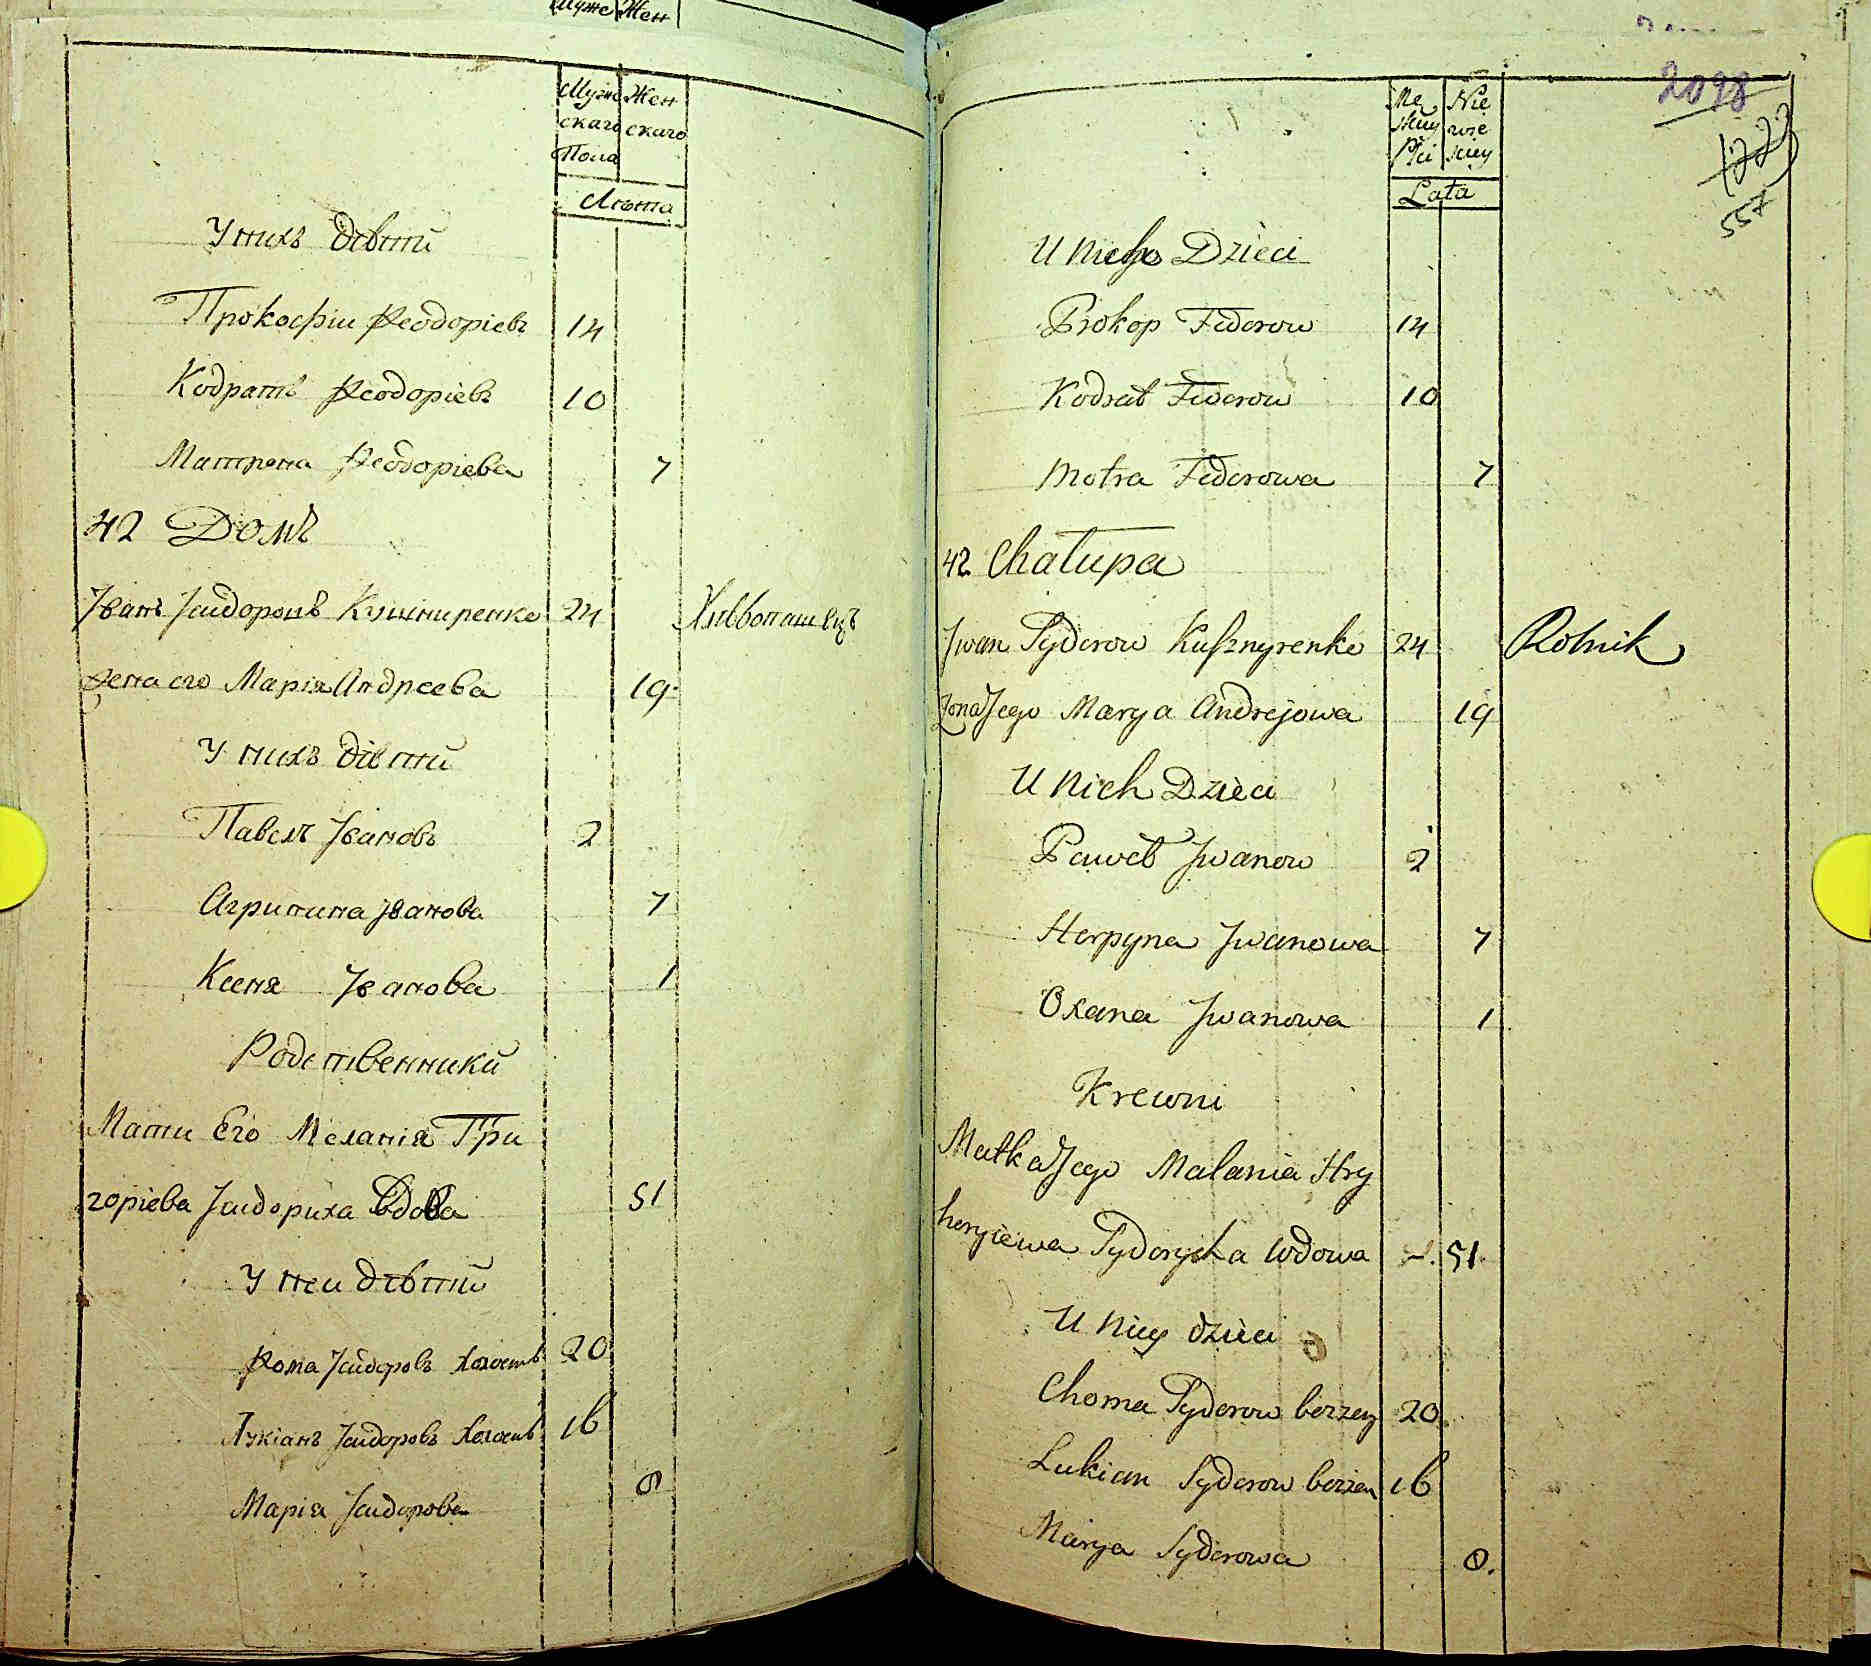 Муже Жен
Муже Жен
скаго скаго
Пола
Лѣта
У нихъ дѣтй
Прокофіи Ѳеодоріевъ 14
Кодратъ Ѳеодоріевъ 10
Матрена Ѳеодоріева 7
42 Домъ
Іванъ Ісидоровъ Кушниренко 24 Хлѣбопашецъ
Жена его Марія Андреева 19
У нихъ дѣтй
Павелъ Івановъ 2
Агрипина Іванова 7
Ксеня Іванова 1
Родственникй
Мати Его Меланія Гри
горіева Ісидориха Вдова 51
У неи дѣтй
Ѳома Ісидоровъ холостъ 20
Лукіанъ Ісидоровъ холостъ 16
Марія Ісидорова 8
2098
557
Mę Nie
skiey wie
Płci skiey
Lata
U Nich Dzieci
Prokop Fedorow 14
Kodrat Fedorow 10
Motra Fedorowa 7
42 Chałupa
Jwan Sydorow Kusznyrenko 24 Rolnik
Zona Jego Marya Andrejowa 19
U Nich Dzieci
Paweł Jwanow 2
Harpyna Jwanowa 7
Oxana Jwanowa 1
Krewni
Matka Jego Malania Hry
horyiewa Sydorycha Wdowa 51
U Niey dzieci
Choma Sydorow bezżen 20
Lukian Sydorow bezżen 16
Marya Sydorowa 8.